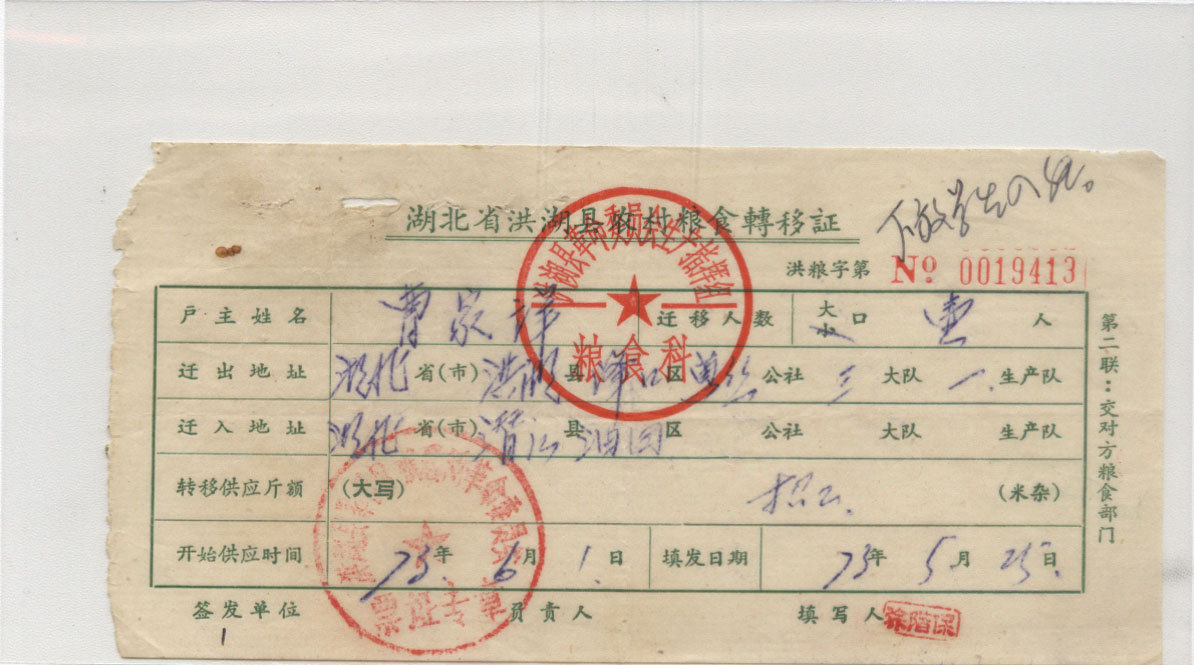 湖北省洪湖县农村粮食轉移証
洪粮字第 No 0019413
洪湖县革命委员会生产指揮组
粮食科
户主姓名 曹家祥 迁移人数 大小口 壹人
迁出地址 湖北省(市) 洪湖县 区 公社 三大队 一生产队
迁入地址 湖北省(市) 潜江县 油田区 公社 大队 生产队
转移供应斤额 (大写) (米杂)
开始供应时间 73年6月1.日 填发日期 73年5月25.日
签发单位 员责人 填写人 徐階保
1
第二联：交对方粮食部门